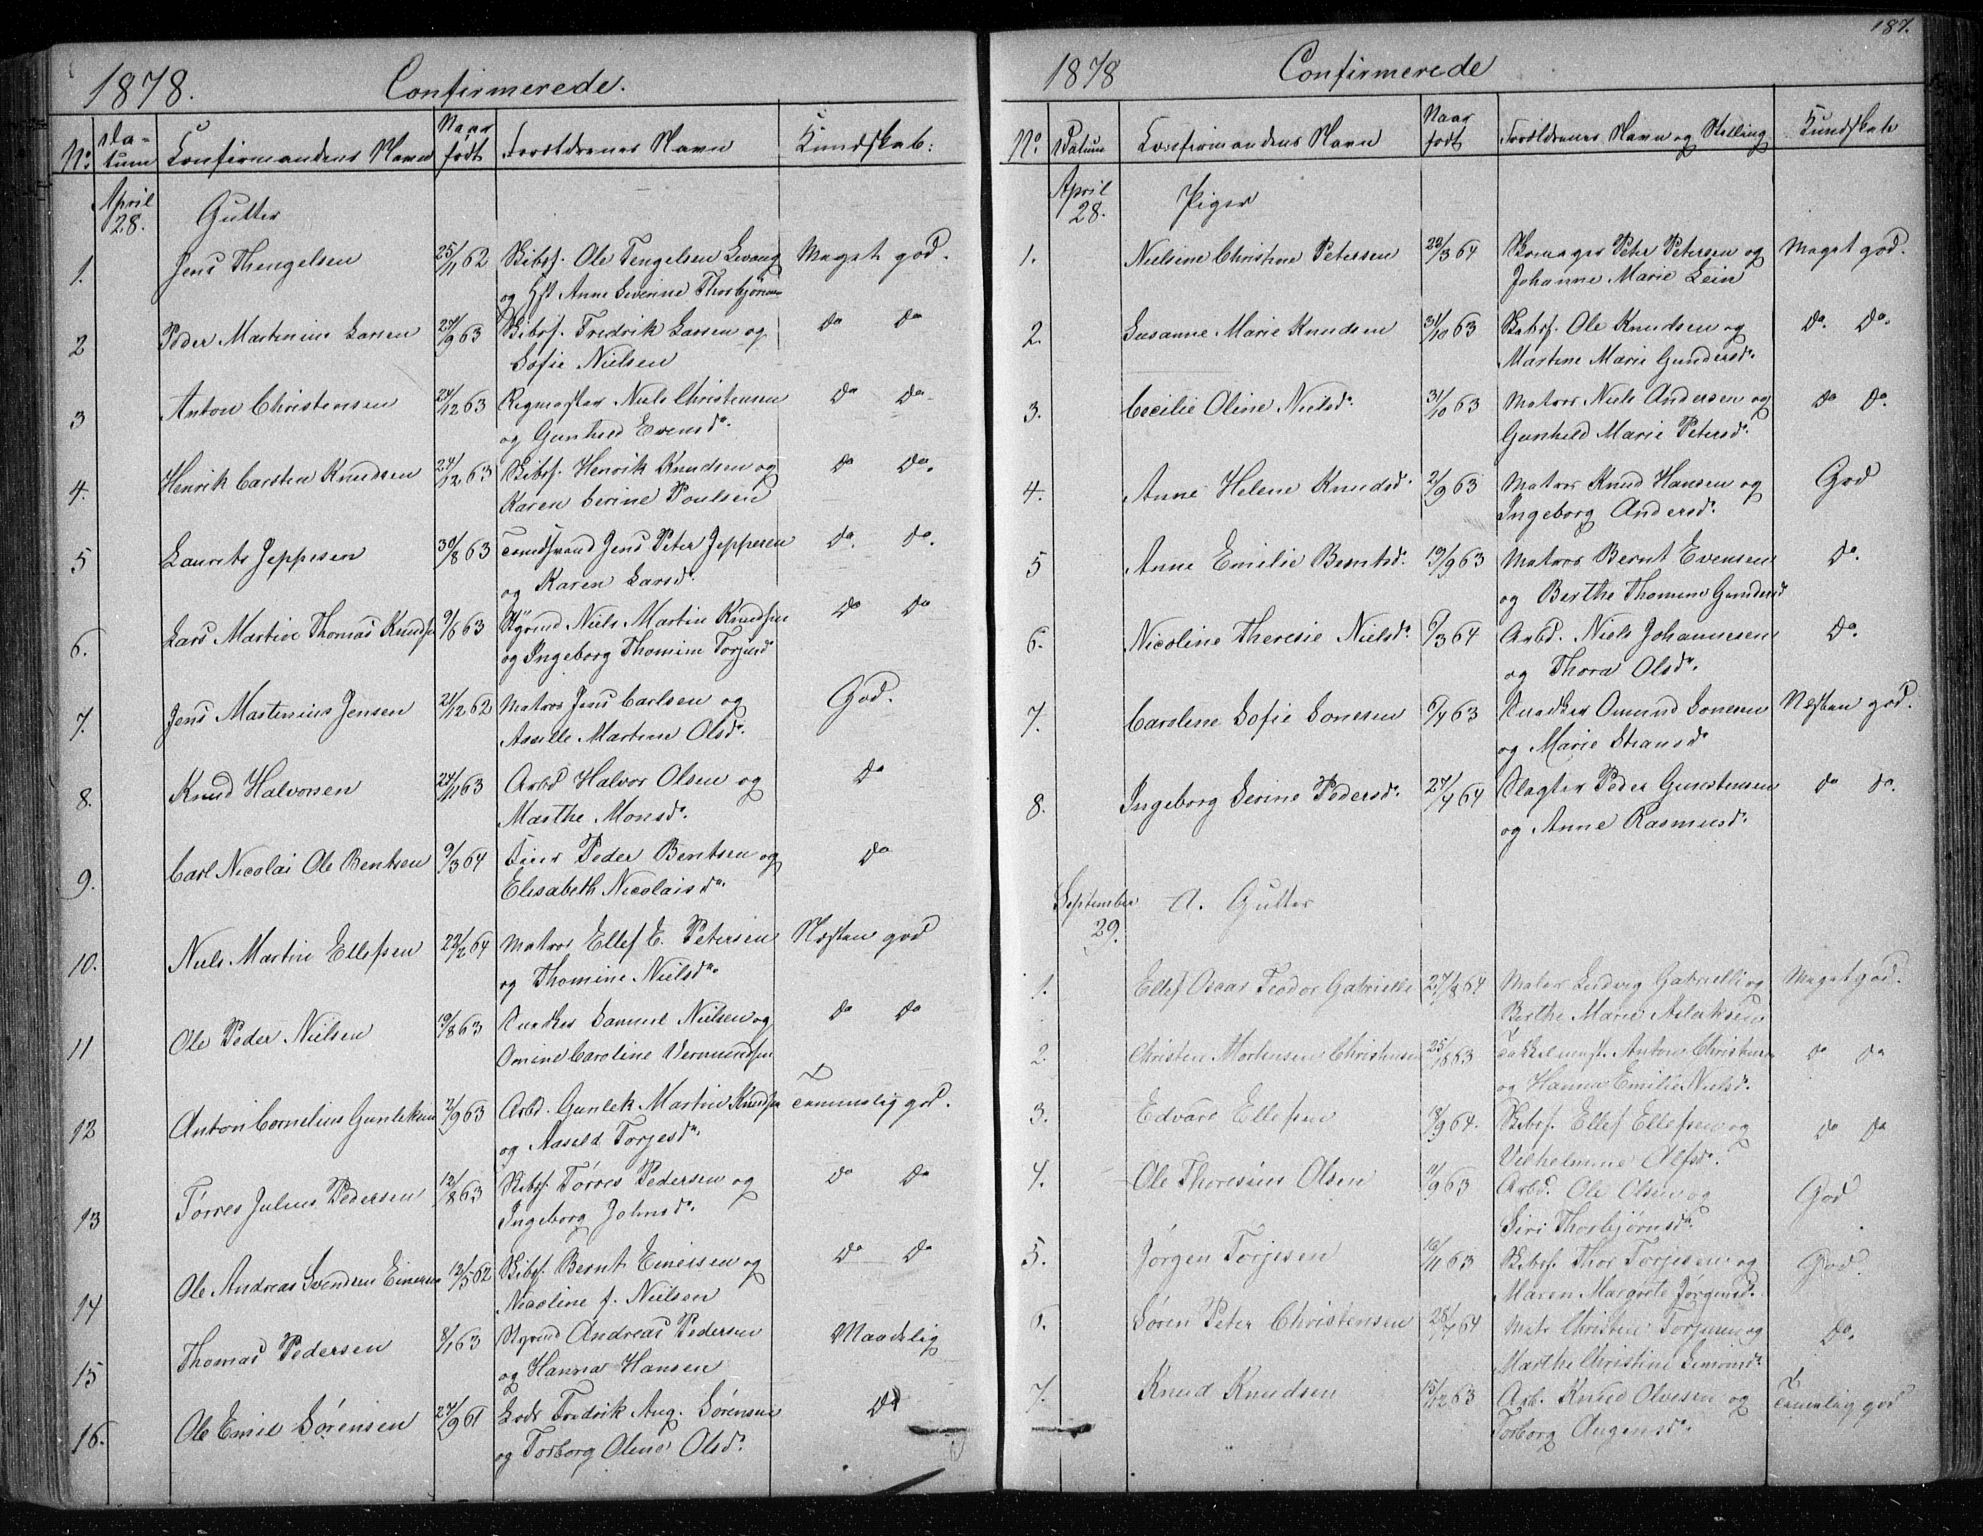 1878.
Confirmerede.
No.
Da-
tum
Confirmandens Navn
Naar
født
Forældrenes Navn
Kundskab:
April
28.
Gutter
1.
Jens Thengelsen
25/11 62
Skibsf. Ole Tengelsen
Meget god.
og Hst. Anne Severine
2
Peder Martinius Larsen
/9 63
Skibsf. Fredrik Larsen og
Do Do
Sofie Nielsen
3
Anton Christensen
24/12 63
Rigmester Niels Christensen
Do Do
og Gunhild Evensd.
4.
Henrik Carsten Knudsen
24/12 63
Skibsf. Henrik Knudsen og
Do Do.
Karen Serine Poulsen
5
Laurits Jeppesen
30/8 63
Jens Peter Jeppesen
Do. Do.
og Karen Larsd.
6.
Lars Martin Thomas Knudsen
9/ 63
Styrmd Niels Martin Knudsen
Do Do
og Ingeborg Thomine
7.
Jens Martinius Jensen
21/12 62
Matros Jens Carlsen og
God.
Martine Olsd.
8.
Knud Halvorsen
24/11 63
Arbd Halvor Olsen og
Do
Marthe Monsd.
9.
Carl Nicolai Ole Bentsen
9/3 64
Peder Bentsen og
Do
Elisabeth Nicolaisd.
10.
Niels Martin Ellefsen
22/2 64
Matros Ellef E. Petersen
Næsten god
og Thomine Nielsd.
11
Ole Peder Nielsen
/8 63
Snedker Samuel Nielsen og
Do Do
Omine Caroline Vermundsen
12
Anton Cornelius Gunleksen
/9 63
Arbd. Gunlek Martin Knudsen
Temmelig god.
og Aasild Torjesd.
13
Tørres Julius Pedersen
12/8 63
Skibsf. Tørres Pedersen og
Do Do
Ingeborg Johnsd.
14
Ole Andreas Svendsen Einersen
12/5 62
Skibsf. Bernt Einersen og
Do Do
Nicoline f. Nielsen
15
Thomas Pedersen
8/1 63
Styrmd Andreas Pedersen
Maadelig
og Hanna Hansen
16.
Ole Emil Sørensen
27/9 61
Lods Fredrik Aug. Sørensen
Do
og Torborg Oline Olsd.
187.
1878
Confirmerede
No.
Datum
Confirmandens Navn
Naar
født
Forældrenes Navn og Stilling
Kundskab
April
28.
Piger
1.
Nielsine Christine Petersen
/3 64
Peter Petersen og
Meget god.
Johanne Marie Lein
2.
Susanne Marie Knudsen
31/10 63
Skibsf. Ole Knudsen og
Do. Do.
Martine Marie Gundersd.
3.
Cecilie Oline Nielsd.
31/10 63
Matros Niels Andersen og
Do Do.
Gunhild Marie Petersd.
4.
Anne Helene Knudsd.
2/9 63
Matros Knud Hansen og
God
Ingeborg Andersd.
5
Anne Emilie Berntsd.
19/9 63
Matros Bernt Evensen
Do.
og Berthe Thomine Gundersd
6.
Nicoline Theresie Nielsd.
/3 64
Arbd. Niels Johannesen
Do.
og Thora Olsd.
7.
Caroline Sofie Sonesen
/4 63
Snedker Omund Sonesen
Næsten god.
og Marie
8.
Ingeborg Serine Pedersd.
27/4 64
Slagter Peder
Do Do.
og Anne Rasmusd.
September
29.
A. Gutter
1.
Ellef Oscar Teodor Gabrielli
27/8 64
Maler Ludvig Gabrielli og
Meget god.
Berthe Marie Aslaksen
2.
Christen Mortensen Christensen
25/ 63
Takkelmest. Anton Christensen
Do Do
og Hanna Emilie Nielsd.
3.
Edvard Ellefsen
18/9 64.
Skibsf. Ellef Ellefsen og
Do Do
Vilhelmine Olsd.
4.
Ole Thoresius Olsen
/9 63
Arbd. Ole Olsen og
God
Siri Thorbjørnsd.
5.
Jørgen Torjesen
/11 63
Skibsf. Thor Torjesen og
God
Maren Margrete Jørgensd.
6.
Søren Peter Christensen
28/ 64
Matr Christen Torjesen og
Do.
Marthe Christine Simonsd.
7.
Knud Knudsen
15/12 63
Arb. Knud Olvesen og
Temmelig god
Torborg Augensd.